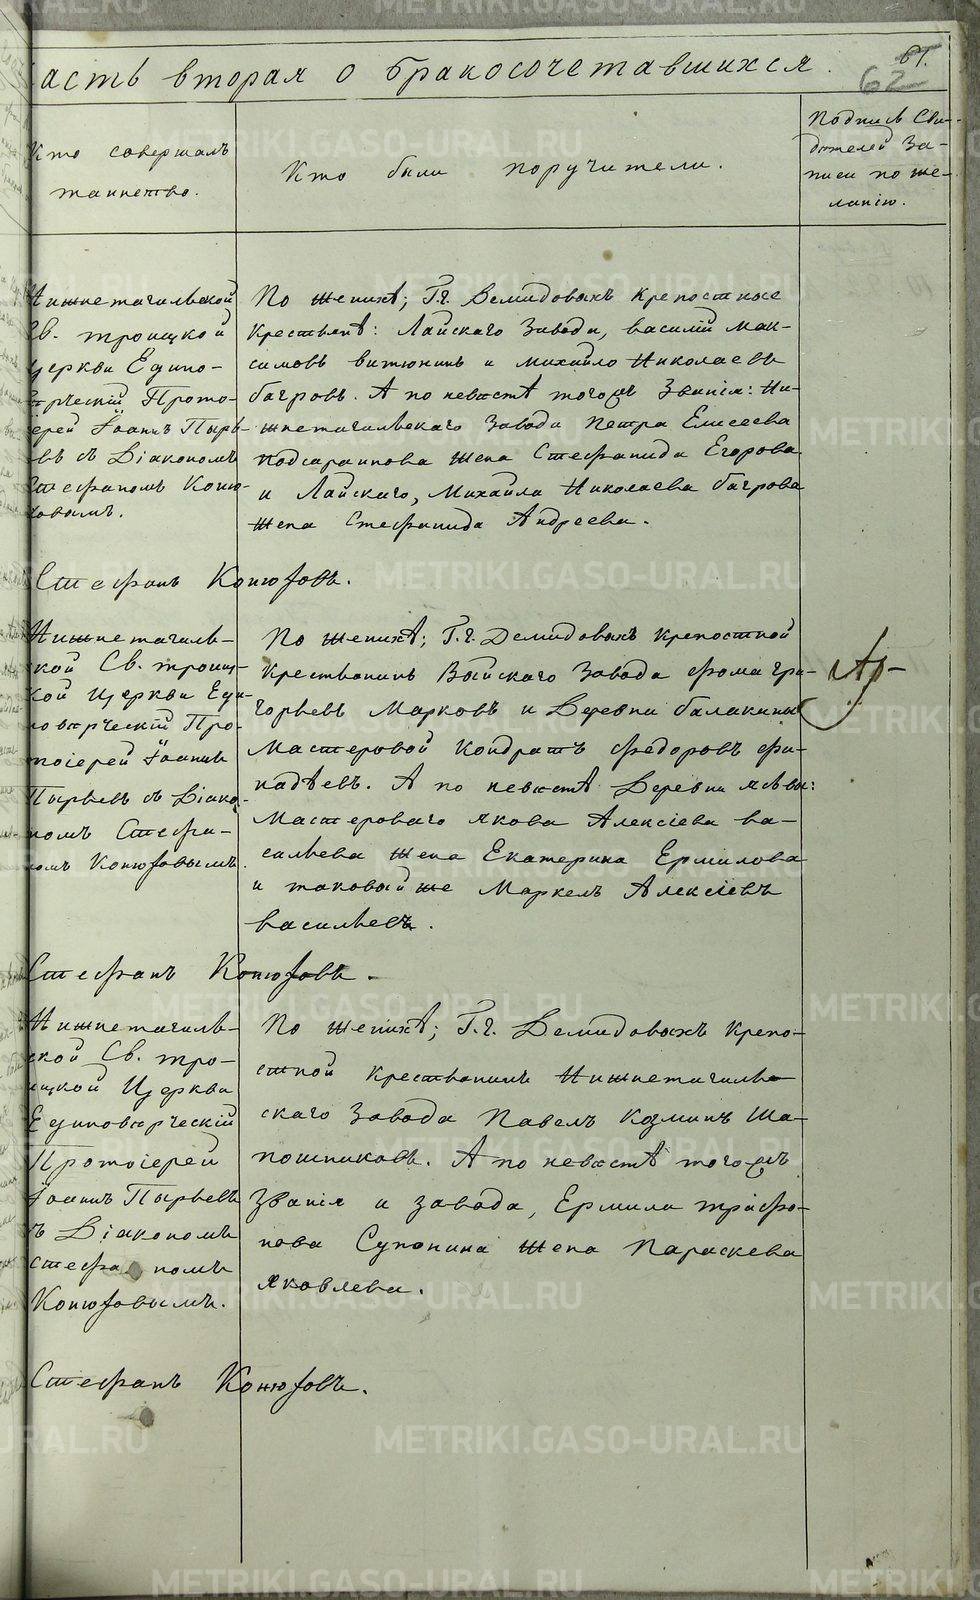 Часть вторая о бракосочетавшихся.
61.
62
Кто совершалъ
таинство.
Кто были поручители.
Подпись Сви-
дѣтелей За-
писи по же-
ланію.
Нижнетагильской
Св. троицкой
церкви Едино-
вѣрческій Прото-
іерей Іоаннъ Пырь-
евъ съ Діакономъ
Стефаномъ Коню-
ховымъ.
По женихѣ; Г.г. Демидовыхъ крепостные
крестьянѣ: Лайскаго Завода, василій мак-
симовъ витюнинъ и михайло Николаевъ
багровъ. А по невѣстѣ тогожъ Званія: Ни-
жнетагильскаго Завода Петра Елисеева
подсараинова жена Стефанида Егорова
и Лайскаго, Михайла Николаева багрова
жена Стефанида Андреева.
Стефанъ Конюховъ.
Нижнетагиль-
ской Св. троиц-
кой Церкви Еди-
новѣрческій Про-
тоіерей Іоаннъ
Пырьевъ съ Діако-
номъ Стефа-
номъ Конюховымъ.
По женихѣ; Г.г. Демидовыхъ крепостной
крестьянинъ Выйскаго Завода фома гри-
горьевъ Марковъ и Деревни балакиной
мастеровой кондратъ федоровъ фи-
надѣевъ. А по невѣстѣ Деревни
мастероваго якова Алексіева ва-
сильева жена Екатерина Ермилова
и таковый же Маркелъ Алексіевъ
васильевъ.
Стефанъ Конюховъ.
Нижнетагиль-
ской Св. тро-
ицкой Церкви
Единовѣрческій
Протоіерей
Іоаннъ Пырьевъ
съ Діакономъ
стефаномъ
Конюховымъ.
По женихѣ; Г.г. Демидовыхъ крепо-
стной крестьянинъ Нижнетагиль-
скаго Завода Павелъ козминъ ша-
пошниковъ. А по невѣстѣ тогожъ
Званія и завода, Ермила трифо-
нова Супонина жена Параскева
яковлева.
Стефанъ Конюховъ.
METRIKI.GASO-URAL.RU